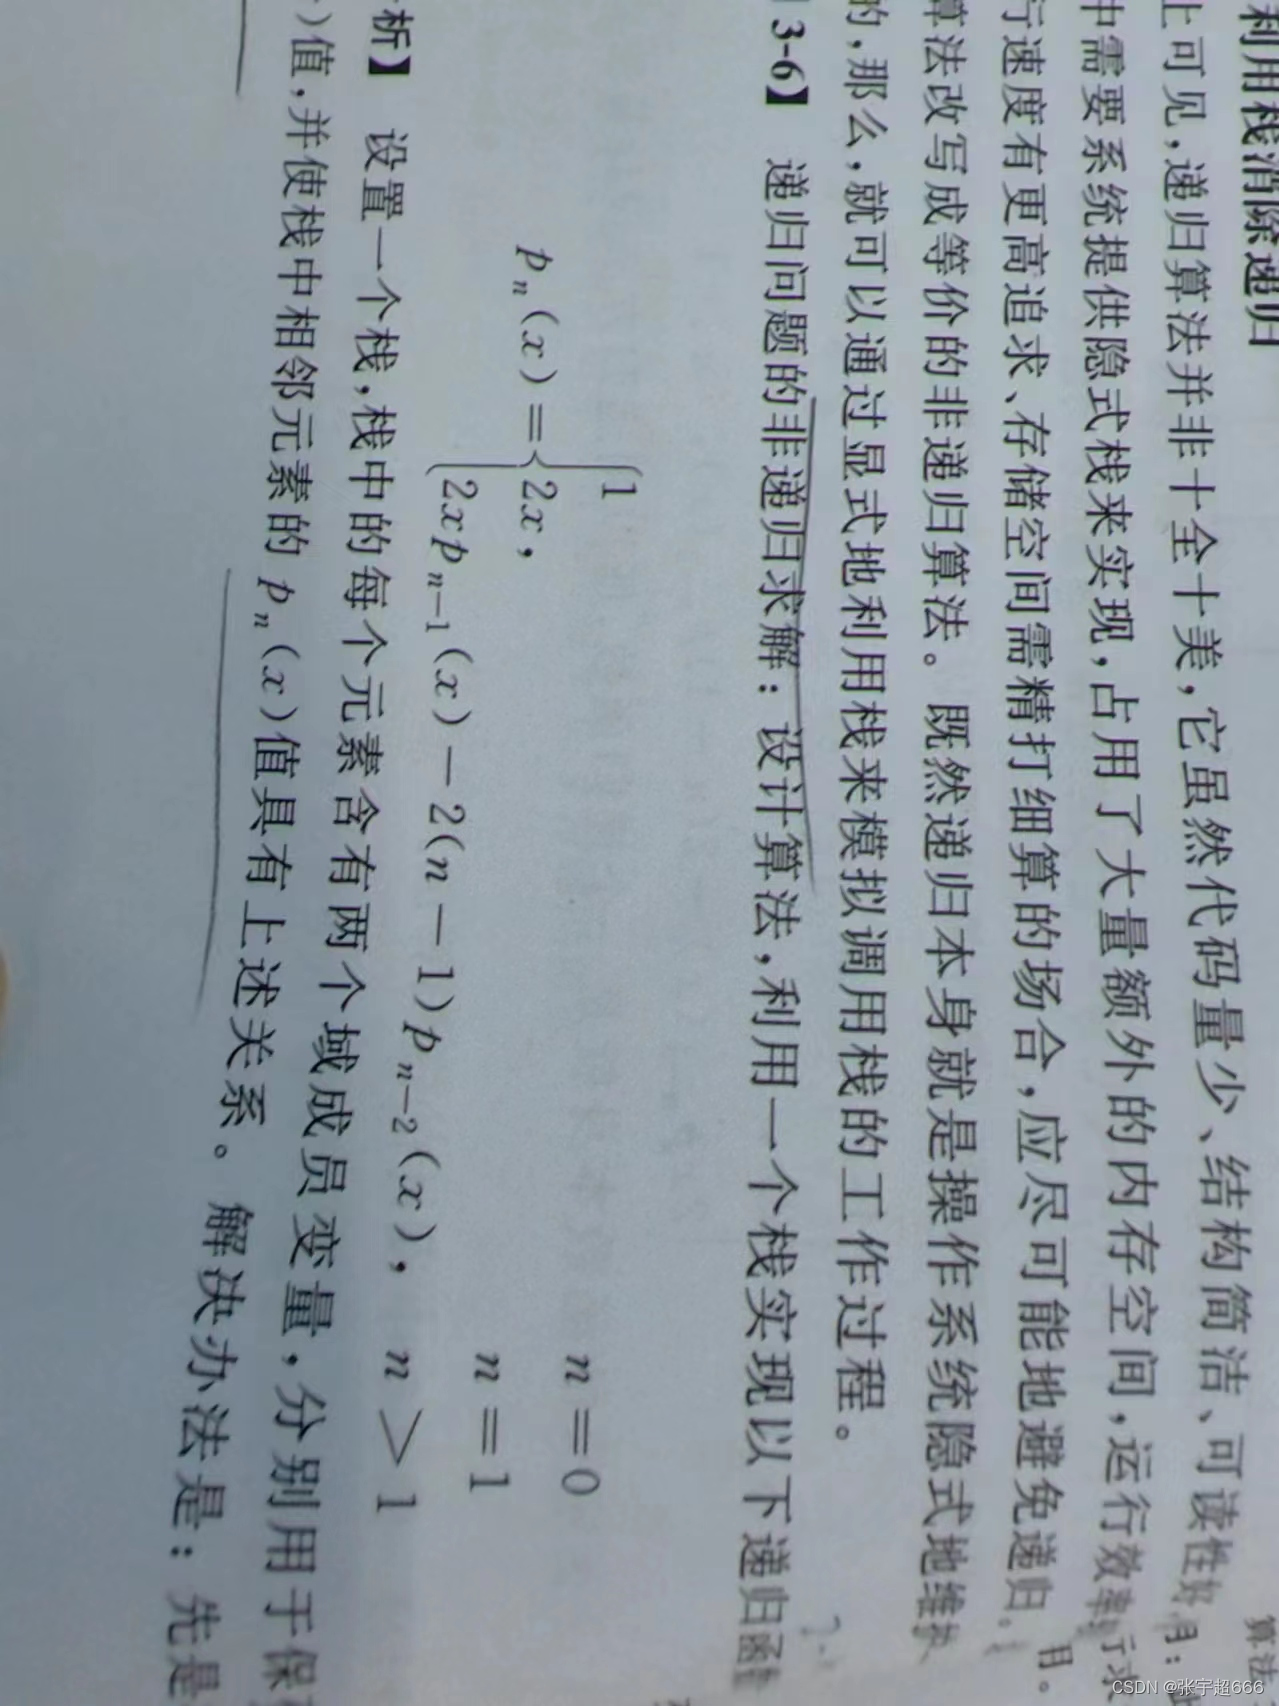 利用栈消除递归
上可见,递归算法并非十全十美,它虽然代码量少、结构简洁、可读性好
中需要系统提供隐式栈来实现,占用了大量额外的内存空间,运行效率
行速度有更高追求、存储空间需精打细算的场合,应尽可能地避免递归,
算法改写成等价的非递归算法。既然递归本身就是操作系统隐式地维护
的,那么,就可以通过显式地利用栈来模拟调用栈的工作过程。
3-6】 递归问题的非递归求解:设计算法,利用一个栈实现以下递归函
1 n=0
pn(x)={2x, n=1
2xpn-1(x)-2(n-1)pn-2(x), n>1
析】 设置一个栈,栈中的每个元素含有两个域成员变量,分别用于保
)值,并使栈中相邻元素的pn(x)值具有上述关系。解决办法是:先是
算法
目。
CSDN @张宇超666